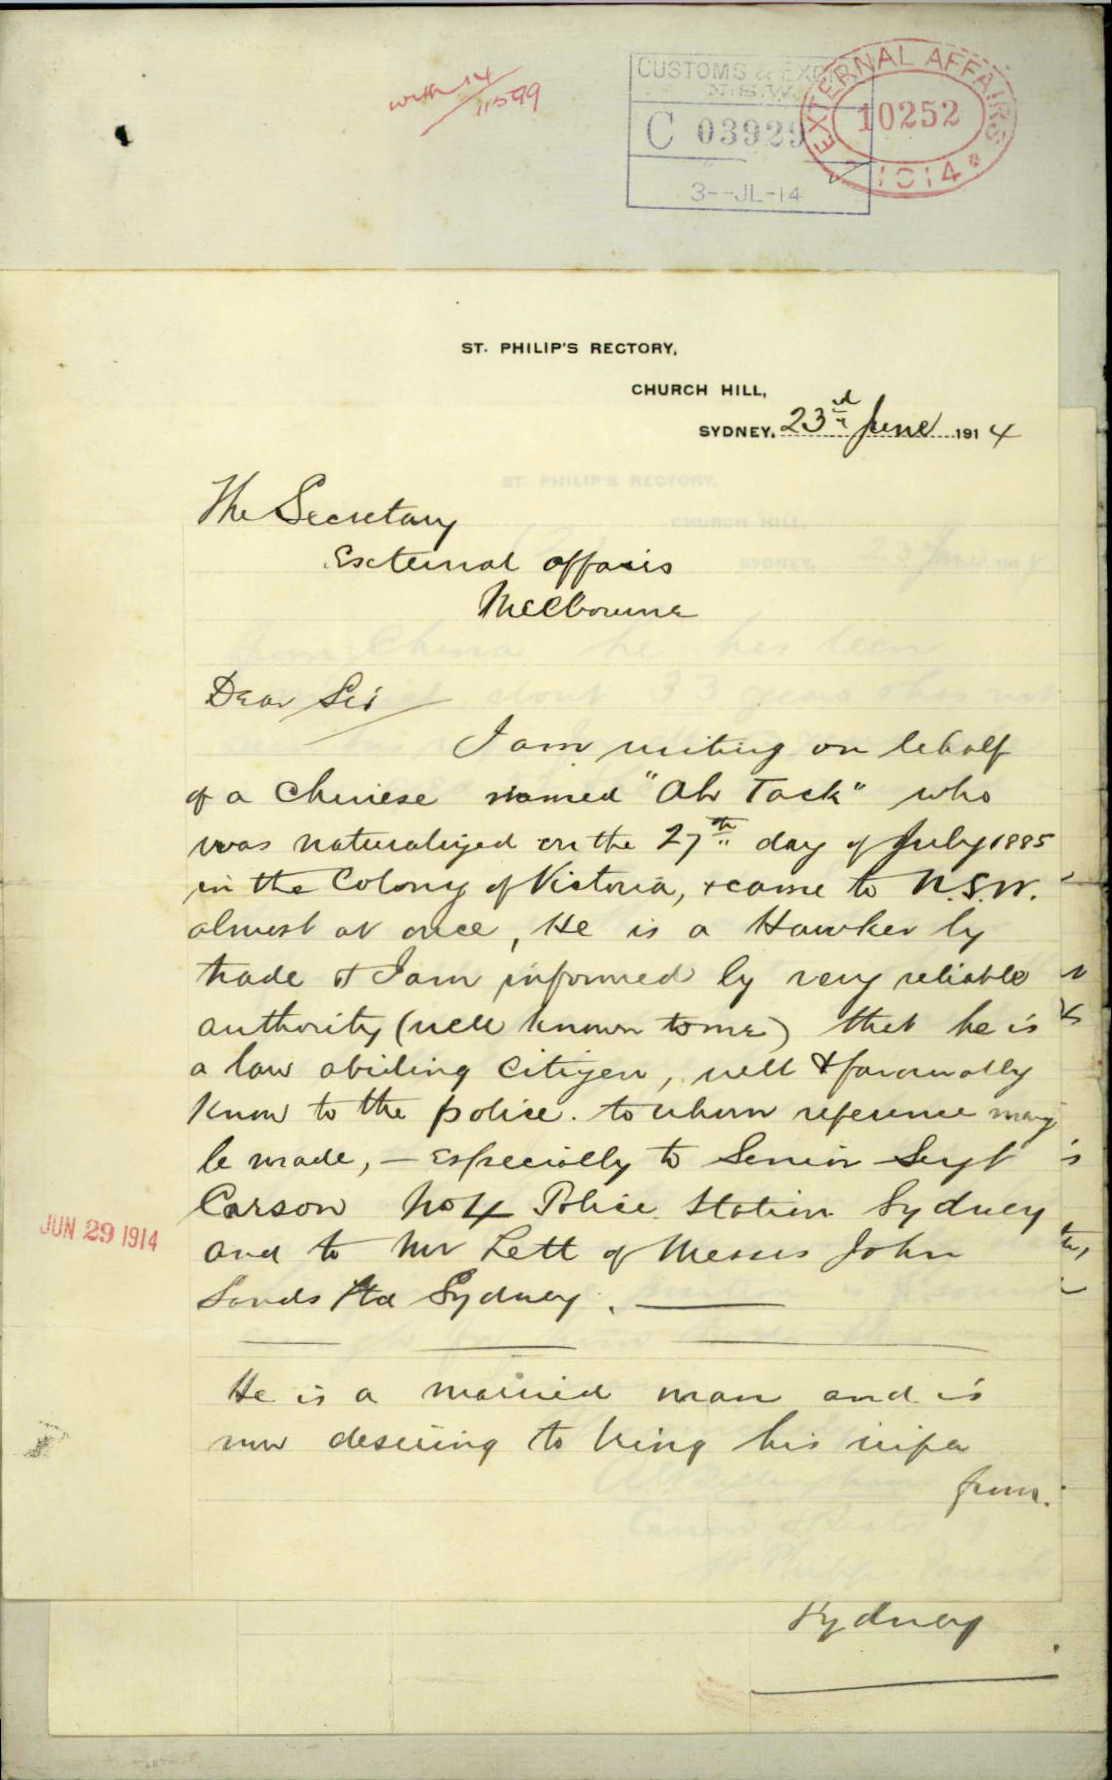 with 14/11599
CUSTOMS & EXCISE
N.S.W.
C 03929
3--JL-14
EXTERNAL AFFAIRS
10252
1914
ST. PHILIP'S RECTORY,
CHURCH HILL,
SYDNEY, 23rd June 1914
The Secretary
External affairs
Melbourne
Dear Sir
I am writing on behalf
of a Chinese named "Ah Tack" who
was naturalized on the 27th day of July 1885
in the Colony of Victoria, & came to N.S.W.
almost at once, He is a Hawker by
trade & I am informed by very reliable
authority (well known to me) that he is
a law abiding citizen, well & favourably
know to the police. to whom reference may
be made, – especially to Senior Sergt
Carson No 4 Police Station Sydney
and to Mr Lett of Messrs John
Sands Ltd Sydney.
JUN 29 1914
He is a married man and is
now desiring to bring his wife
from.
Sydney